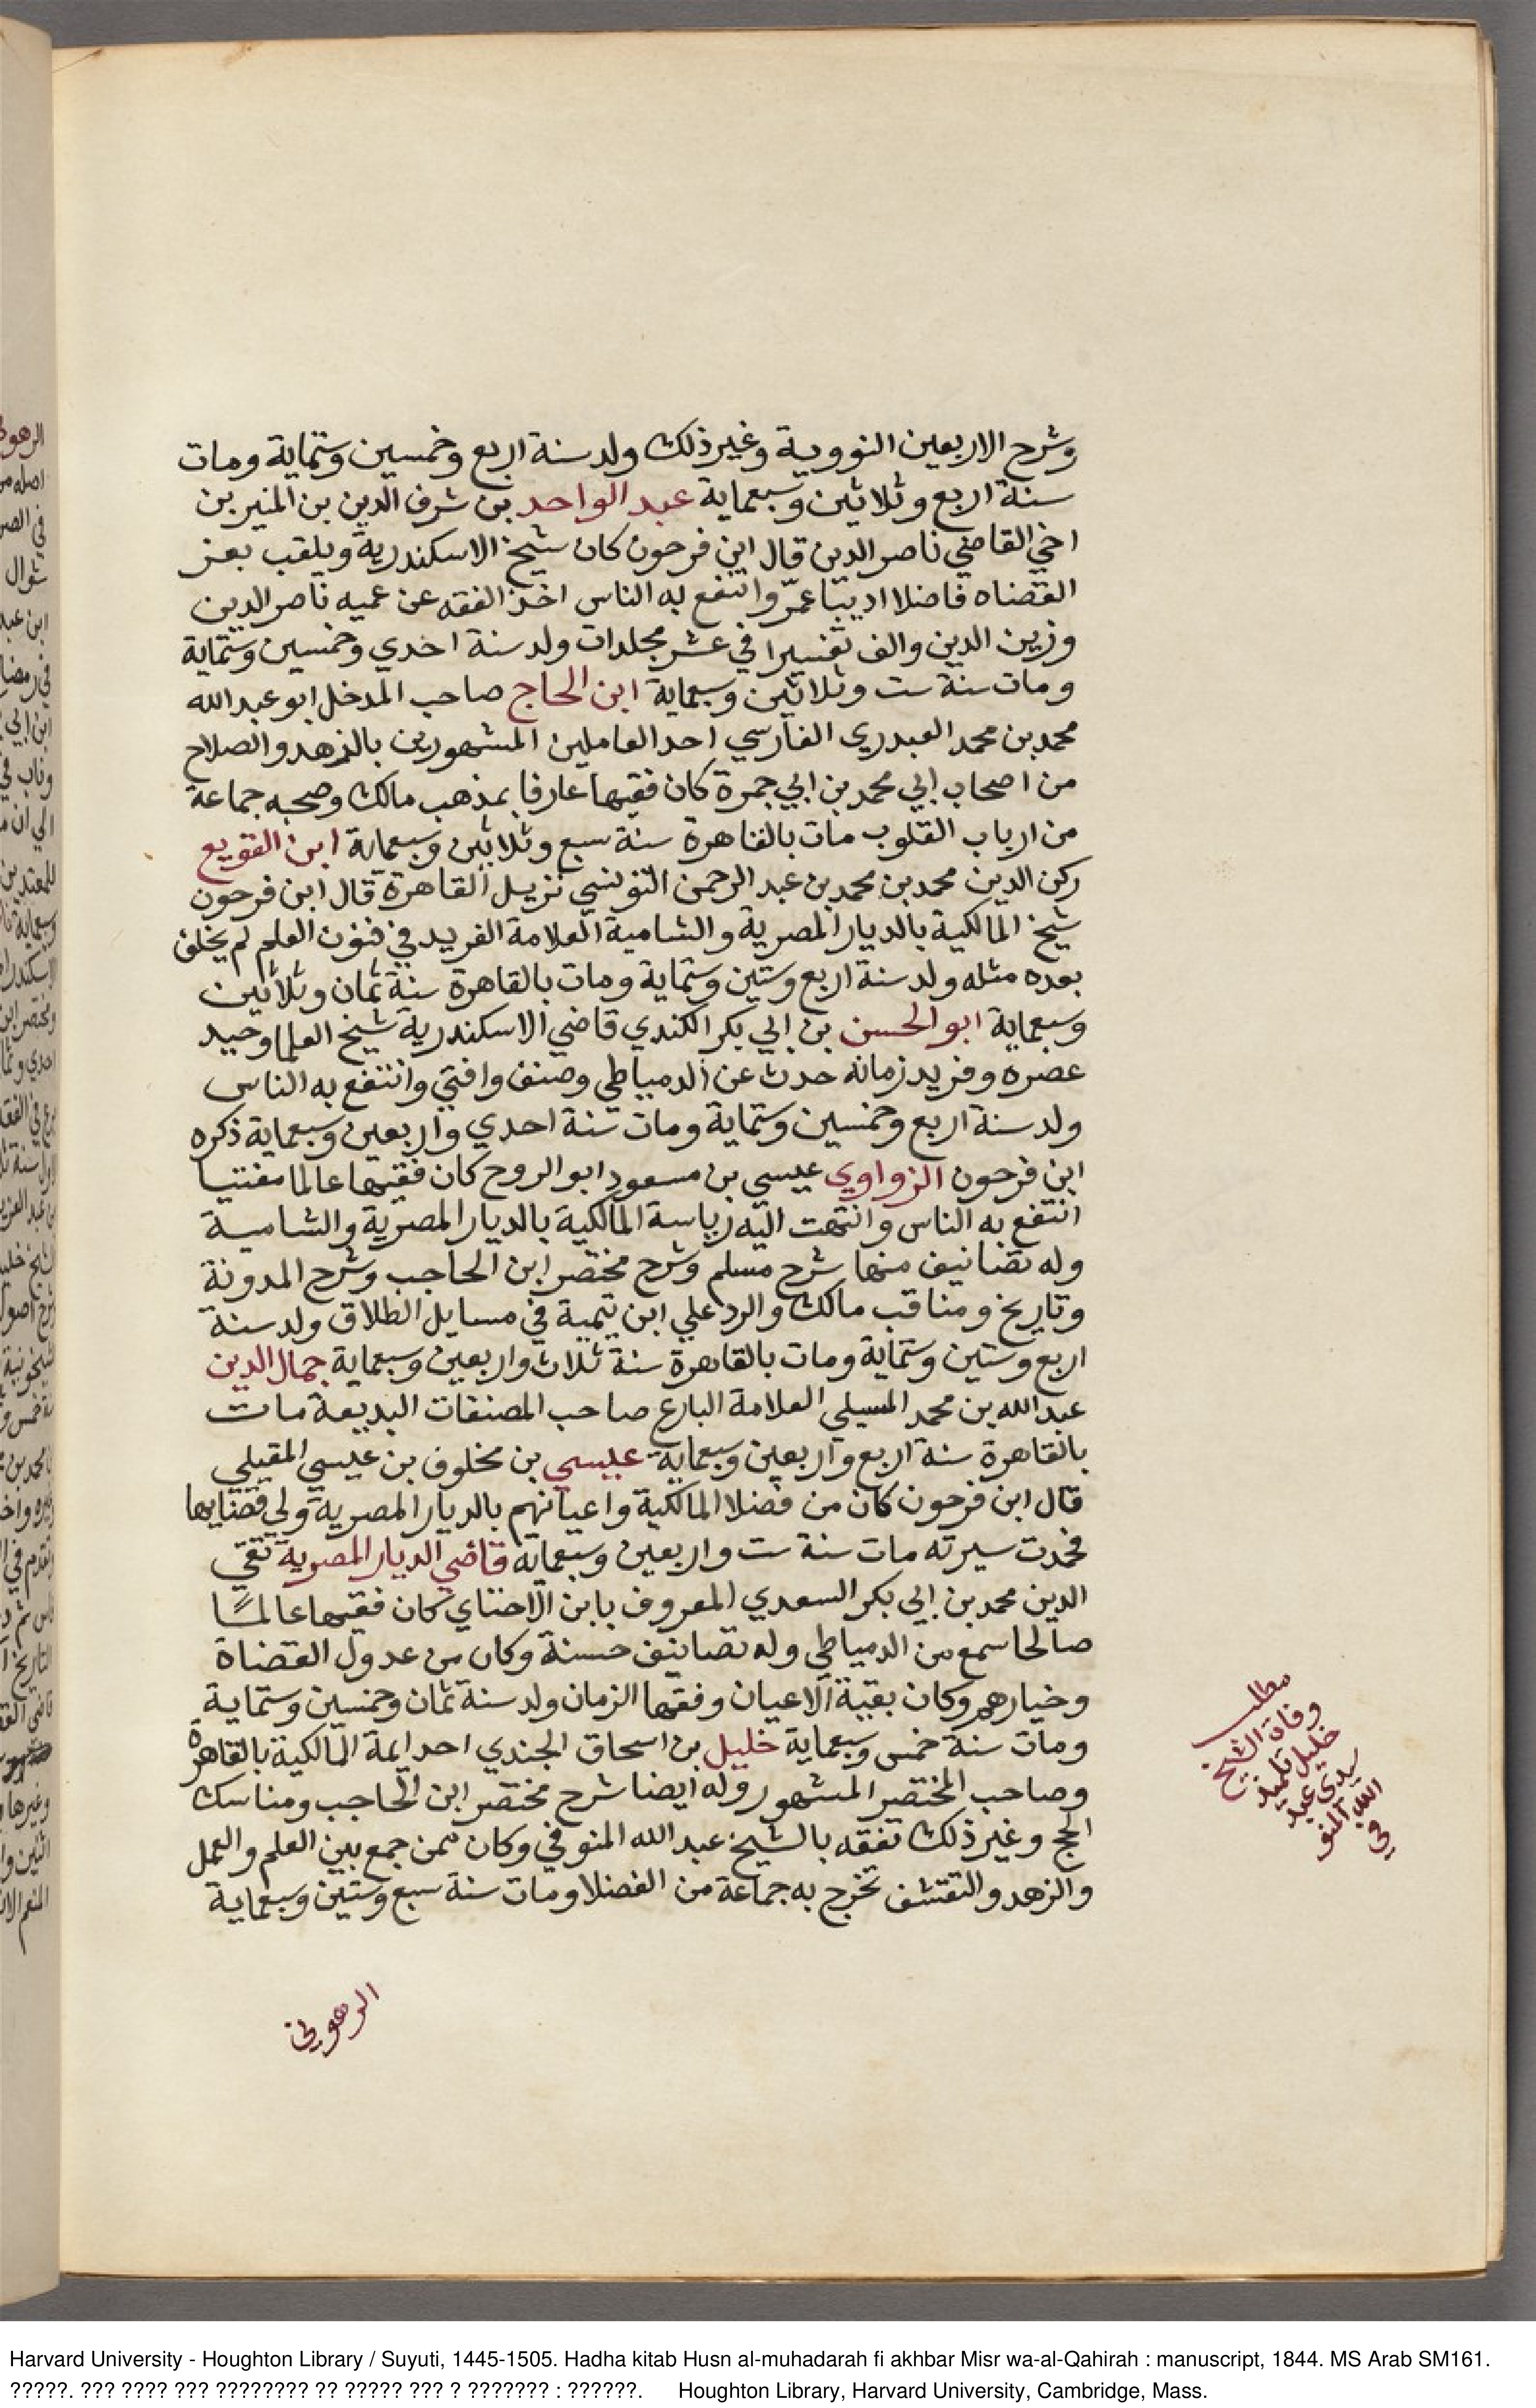 وشرح الاربعين النووية وغير ذلك ولد سنة اربع وخمسين وستماية ومات
سنة اربع وثلاثين وسبعماية عبد الواحد بن شرف الدين بن المنير بن
اخي القاضي ناصر الدين قال ابن فرحون كان شيخ الاسكندرية ويلقب بعز
القضاه فاضلا اديبا عمّر وانتفع به الناس اخذ الفقه عن عميه ناصر الدين
وزين الدين والف تفسيرا في عشر مجلدات ولد سنة احدي وخمسين وستماية
ومات سنة ست وثلاثين وسبعماية ابن الحاج صاحب المدخل ابو عبد الله
محمد بن محمد العبدري الفارسي احد العاملين المشهورين بالزهد والصلاح
من اصحاب ابي محمد بن ابي جمرة كان فقيها عارفا بمذهب مالك وصحبه جماعة
من ارباب القلوب مات بالقاهرة سنة سبع وثلاثين وسبعماية ابن القويع
ركن الدين محمد بن محمد بن عبد الرحمن التونسي نزيل القاهرة قال ابن فرحون
شيخ المالكية بالديار المصرية والشامية العلامة الفريد في فنون العلم لم يخلف
بعده مثله ولد سنة اربع وستين وستماية ومات بالقاهرة سنة ثمان وثلاثين
وسبعماية ابو الحسن بن ابي بكر الكندي قاضي الاسكندرية شيخ العلما وحيد
عصره وفريد زمانه حدث عن الدمياطي وصنف وافتي وانتفع به الناس
ولد سنة اربع وخمسين وستماية ومات سنة احدي واربعين وسبعماية ذكره
ابن فرحون الزواوي عيسي بن مسعود ابو الروح كان فقيها عالما مفتيا
انتفع به الناس وانتهت اليه رياسة المالكية بالديار المصرية والشامية
وله تصانيف منها شرح مسلم وشرح مختصر ابن الحاجب وشرح المدونة
وتاريخ ومناقب مالك والرد علي ابن تيمية في مسايل الطلاق ولد سنة
اربع وستين وستماية ومات بالقاهرة سنة ثلاث واربعين وسبعماية جمال الدين
عبد الله بن محمد المسيلي العلامة البارع صاحب المصنفات البديعة مات
بالقاهرة سنة اربع واربعين وسبعماية عيسي بن مخلوف بن عيسي المقيلي
قال ابن فرحون كان من فضلا المالكية واعيانهم بالديار المصرية ولي قضايها
فحمدت سيرته مات سنة ست واربعين وسبعماية قاضي الديار المصرية تقي
الدين محمد بن ابي بكر السعدي المعروف بابن الاخناي كان فقيها عالمًا
صالحا سمع من الدمياطي وله تصانيف حسنة وكان من عدول القضاة
وخيارهم وكان بقية الاعيان وفقها الزمان ولد سنة ثمان وخمسين وستماية
ومات سنة خمس وسبعماية خليل بن اسحاق الجندي احد ايمة المالكية بالقاهرة
وصاحب المختصر المشهور وله ايضا شرح مختصر ابن الحاجب ومناسك
الحج وغير ذلك تفقه بالشيخ عبد الله المنوفي وكان ممن جمع بين العلم والعمل
والزهد والتقشف تخرج به جماعة من الفضلا ومات سنة سبع وستين وسبعماية
الرهوني
مطلب
وفاة الشيخ
خليل تلميذ
سيدي عبد
الله المنو
في
Harvard University - Houghton Library / Suyuti, 1445-1505. Hadha kitab Husn al-muhadarah fi akhbar Misr wa-al-Qahirah : manuscript, 1844. MS Arab SM161.
?????. ??? ???? ??? ???????? ?? ????? ??? ? ??????? : ??????. Houghton Library, Harvard University, Cambridge, Mass.